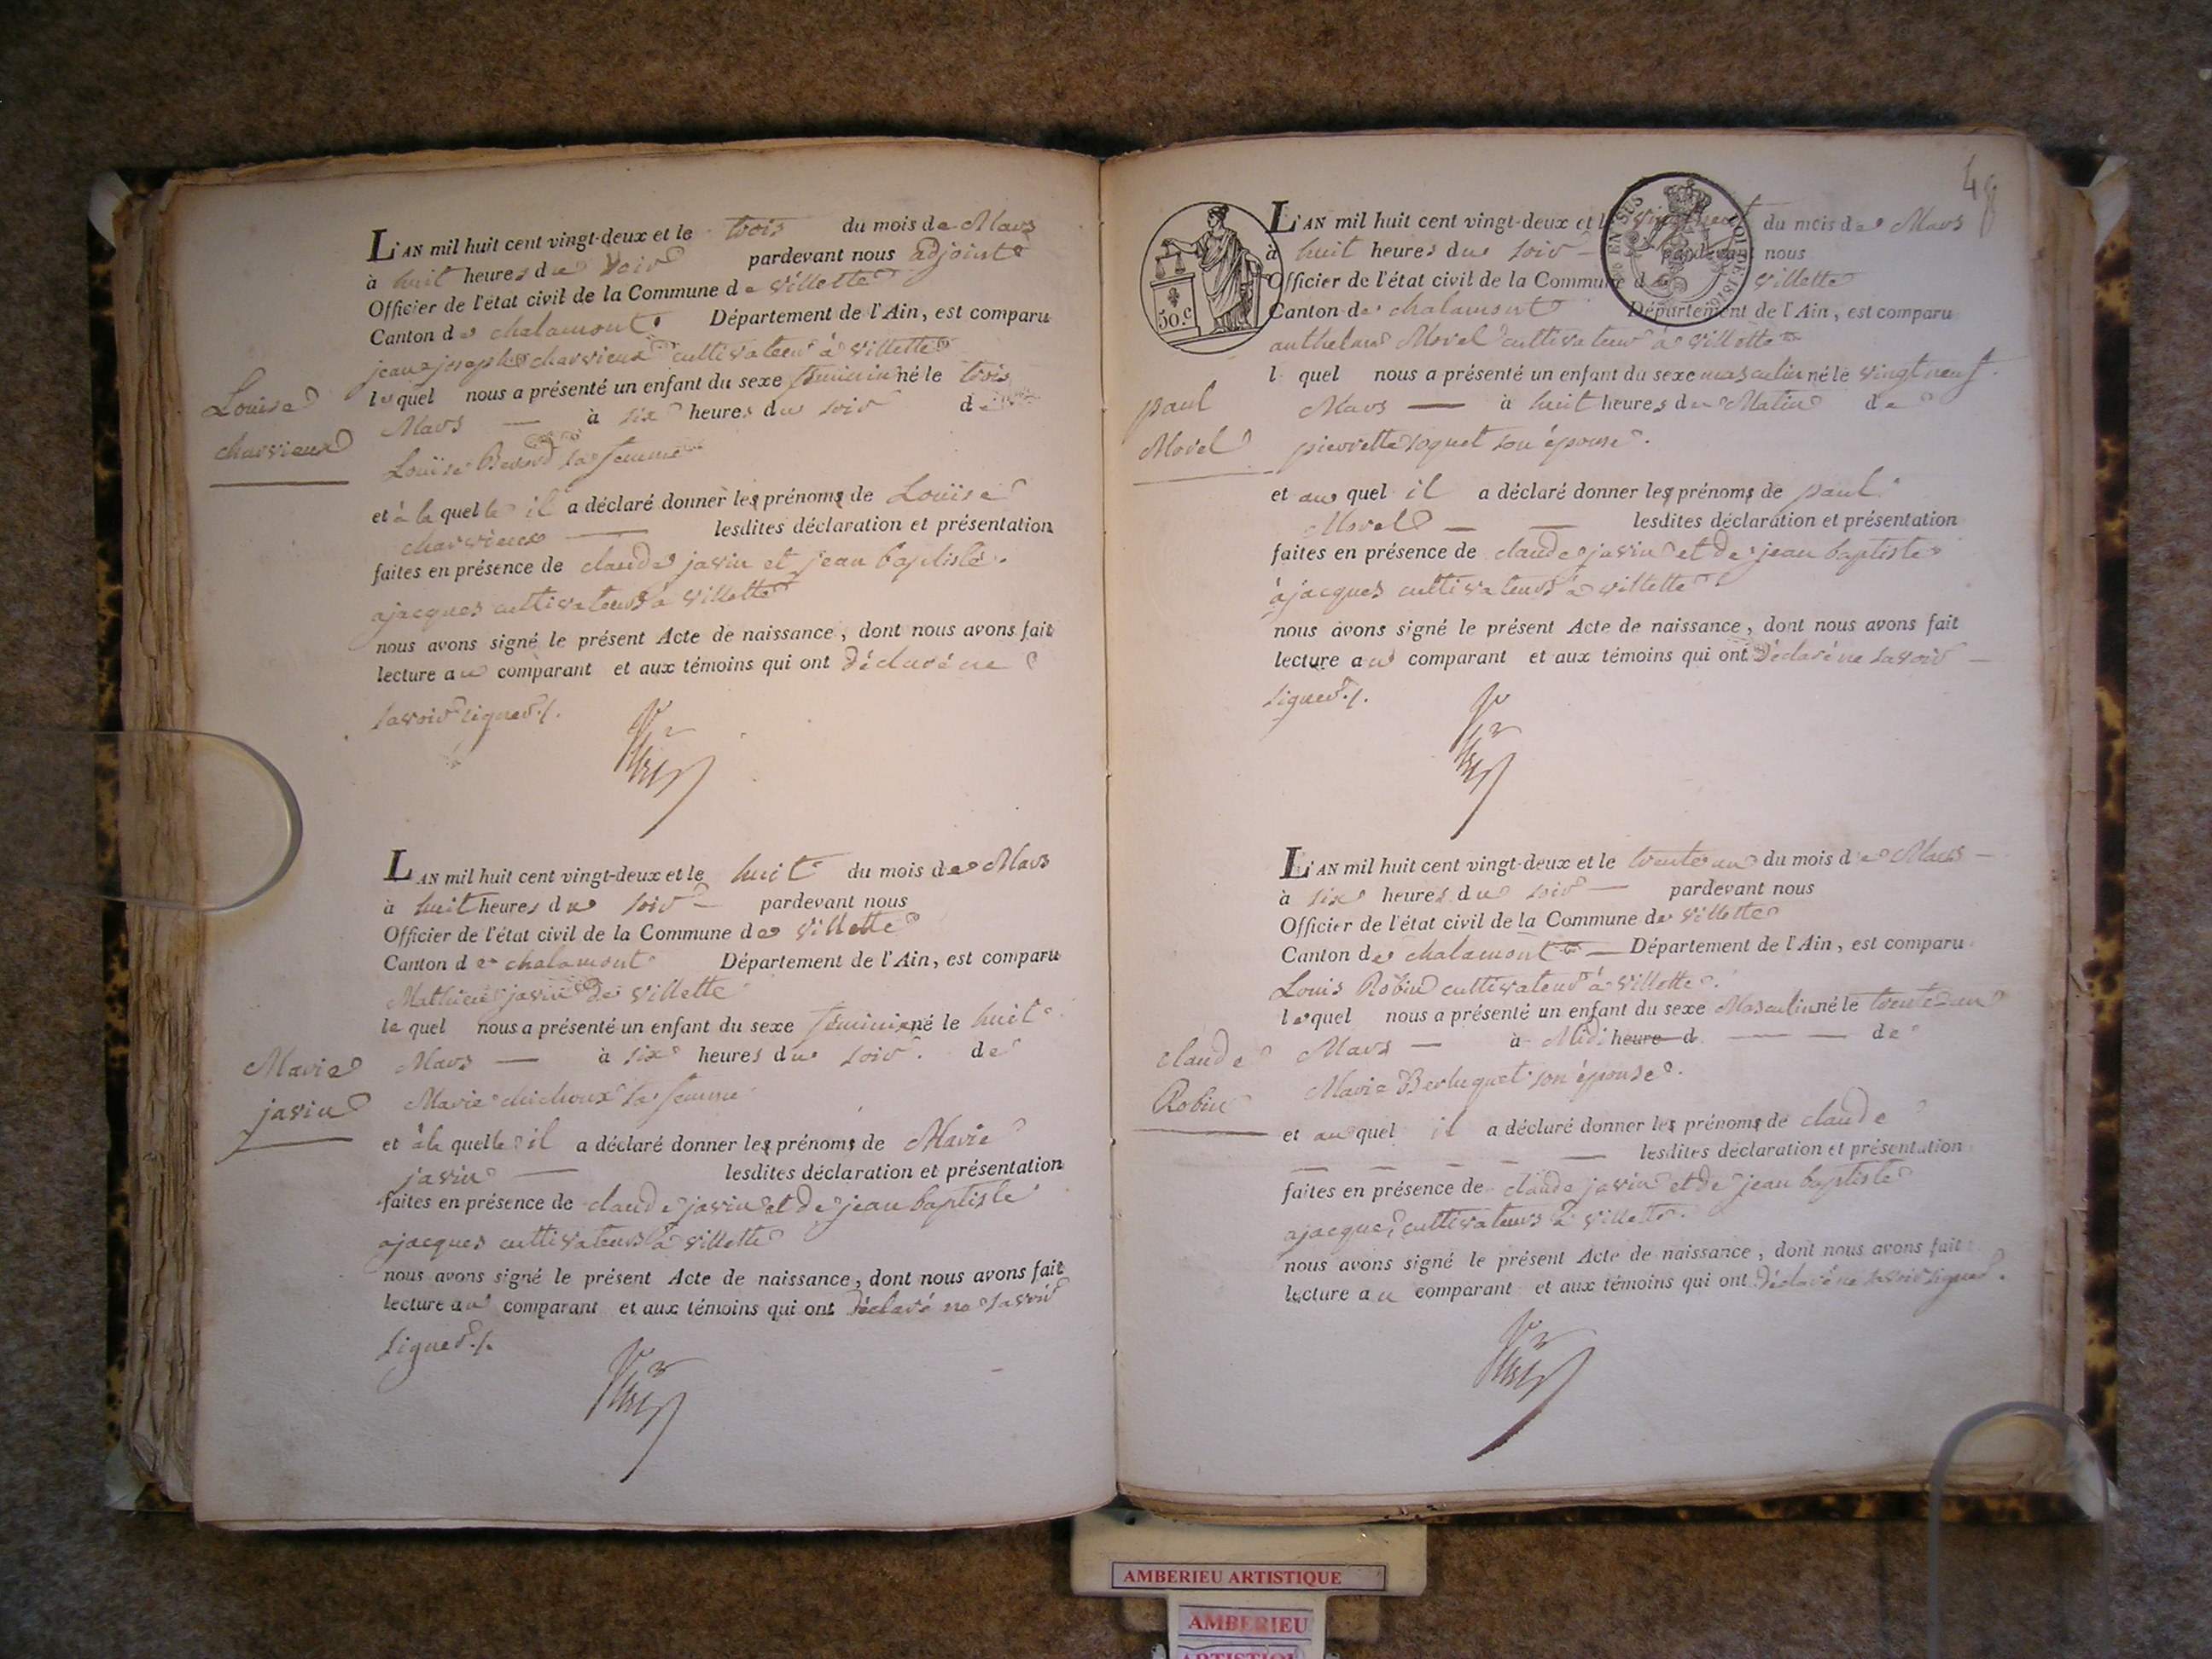 L'AN mil huit cent vingt-deux et le trois du mois de Mars
à huit heures du soir pardevant nous adjoint
Officier de l'état civil de la Commune de villette
Canton de chalamont Département de l'Ain, est comparu
jean joseph charvieux cultivateur à villette
lequel nous a présenté un enfant du sexe feminin né le trois
Mars — à six heures du soir de
Louise
charvieux
Louise Berord sa femme
et à la quelle il a déclaré donner les prénoms de Louise
charvieux — lesdites déclaration et présentation
faites en présence de claude javin et jean baptiste
ajacques cultivateurs a villette
nous avons signé le présent Acte de naissance, dont nous avons fait
lecture au comparant et aux témoins qui ont déclaré ne
savoir signer ./.
L'AN mil huit cent vingt-deux et le huit du mois de Mars
à huit heures du soir — pardevant nous
Officier de l'état civil de la Commune de villette
Canton de chalamont Département de l'Ain, est comparu
Mathieu javin de villette
le quel nous a présenté un enfant du sexe feminin né le huit
Mars — à six heures du soir. de
Marie
javin
Marie chichoux sa femme
et à la quelle il a déclaré donner les prénoms de Marie
javin — lesdites déclaration et présentation
faites en présence de claude javin et de jean baptiste
ajacques cultivateurs à villette
nous avons signé le présent Acte de naissance, dont nous avons fait
lecture au comparant et aux témoins qui ont déclaré ne savoir
signer ./.
48
50.c
L'AN mil huit cent vingt-deux et le vingt neuf du mois de Mars
à huit heures du soir — pardevant nous
Officier de l'état civil de la Commune de villette
Canton de chalamont Département de l'Ain, est comparu
anthelme Morel cultivateur à villette
l quel nous a présenté un enfant du sexe masculin né le vingt neuf
Mars — à huit heures du Matin de
paul
Morel
pierrette soquet son épouse.
et au quel il a déclaré donner les prénoms de paul
Morel — — lesdites déclaration et présentation
faites en présence de claude javin et de jean baptiste
ajacques cultivateurs à villette
nous avons signé le présent Acte de naissance, dont nous avons fait
lecture au comparant et aux témoins qui ont déclaré ne savoir —
signer ./.
L'AN mil huit cent vingt-deux et le trente un du mois de Mars —
à six heures du soir — pardevant nous
Officier de l'état civil de la Commune de villette
Canton de chalamont — Département de l'Ain, est comparu
Louis Robin cultivateur à villette.
lequel nous a présenté un enfant du sexe Masculin né le trente un
Mars — à Midi heure d — — de
claude
Robin
Marie Berluquet son épouse.
et au quel il a déclaré donner les prénoms de claude
— — — — — lesdites déclaration et présentation
faites en présence de claude javin et de jean baptiste
ajacques cultivateurs à villette.
nous avons signé le présent Acte de naissance, dont nous avons fait
lecture au comparant et aux témoins qui ont déclaré ne savoir signer.
AMBERIEU ARTISTIQUE
AMBERIEU